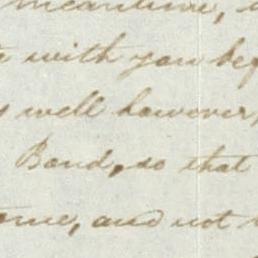 meantime,
with you bef
well however,
Bond, so that
ome, and not